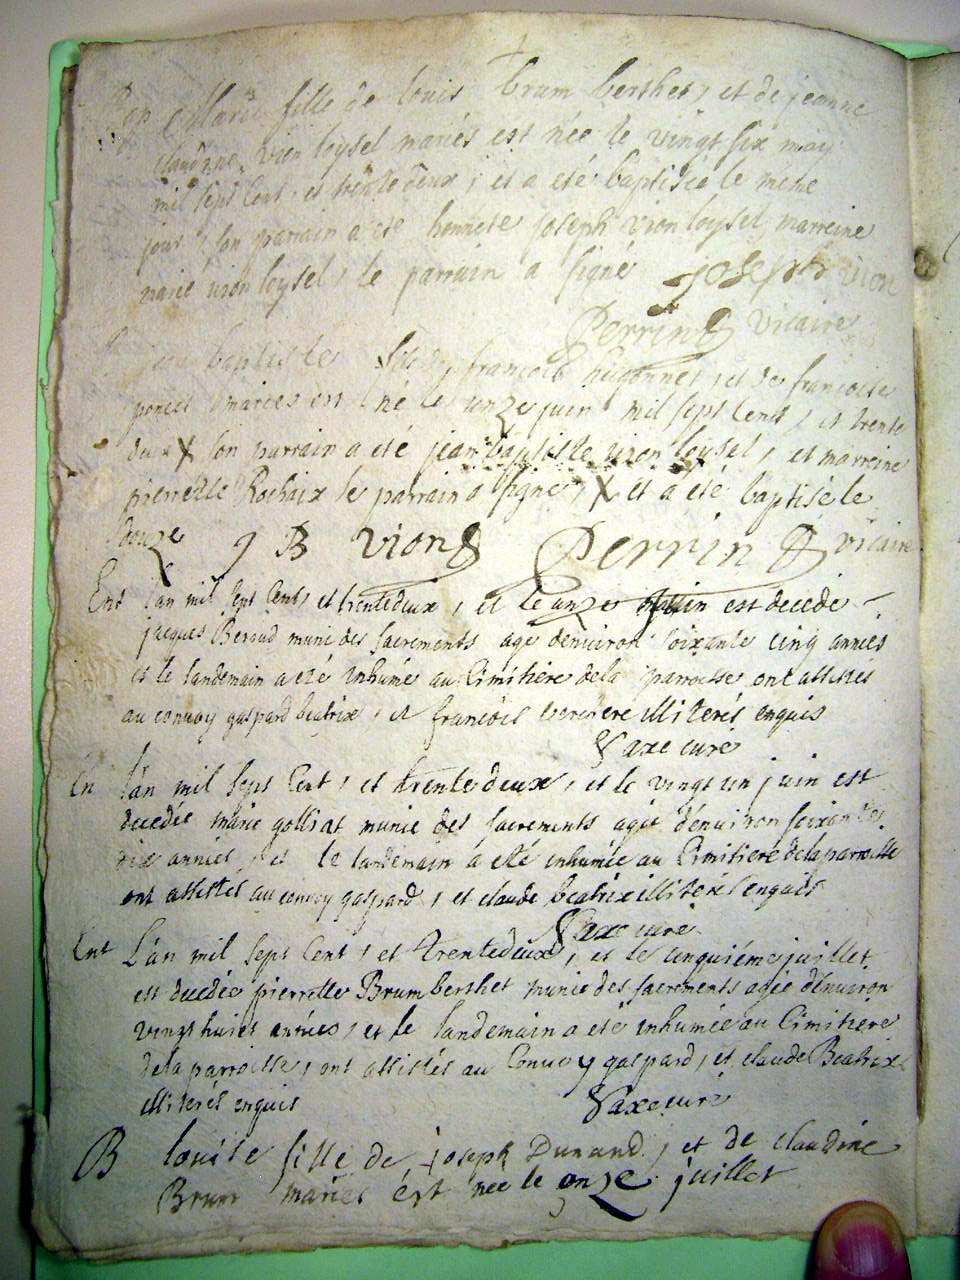 Marie fille de louis brum berthet, et de jeanne
claudine vion loysel mariés est née le vingt six may
mil sept Cent, et trente deux, et a été baptisée le meme
jour, son parrain a été honnete joseph vion loysel, marreine
marie vion loysel, le parrain a signé joseph vion
Perrin vicaire
jean baptiste fils de françois hugonnet, et de françoise
poncet mariés est né le unze juin mil sept Cent, et trente
deux X son parrain a été jean baptiste vion loysel, et marreine
pierrette Rochaix le parrain a signé, X et a été baptisé le
douze J B vion Perrin vicaire
Ent l'an mil sept Cent, et trentedeux, et le unze juin est decedé
jacques Beroud muni des sacrements agé denviron soixante cinq années
et le landemain a été inhumé au Cimitiere dela parroisse ont assistés
au convoy gaspard beatrix, et françois illiterés enquis
Saxe curé
En l'an mil sept Cent, et trente deux, et le vingt un juin est
decedée marie gollirat munie des sacrements agée d'environ soixantes
dix années, et le landemain a été inhumée au Cimitiere dela parroisse
ont assistés au convoy gaspard, et claude beatrix illiterés enquis
Saxe curé
Ent L'an mil sept Cent, et trentedeux, et le cinquiéme juillet
est decedée pierrette Brum berthet munie des sacrements agée d'environ
vingt huict années, et le landemain a été inhumée au Cimitiere
dela parroisse, ont assistés au Convoy gaspard, et claude Beatrix
illiterés enquis Saxe curé
B louise fille de joseph Durand, et de claudine
Brum mariés est née le onze juillet